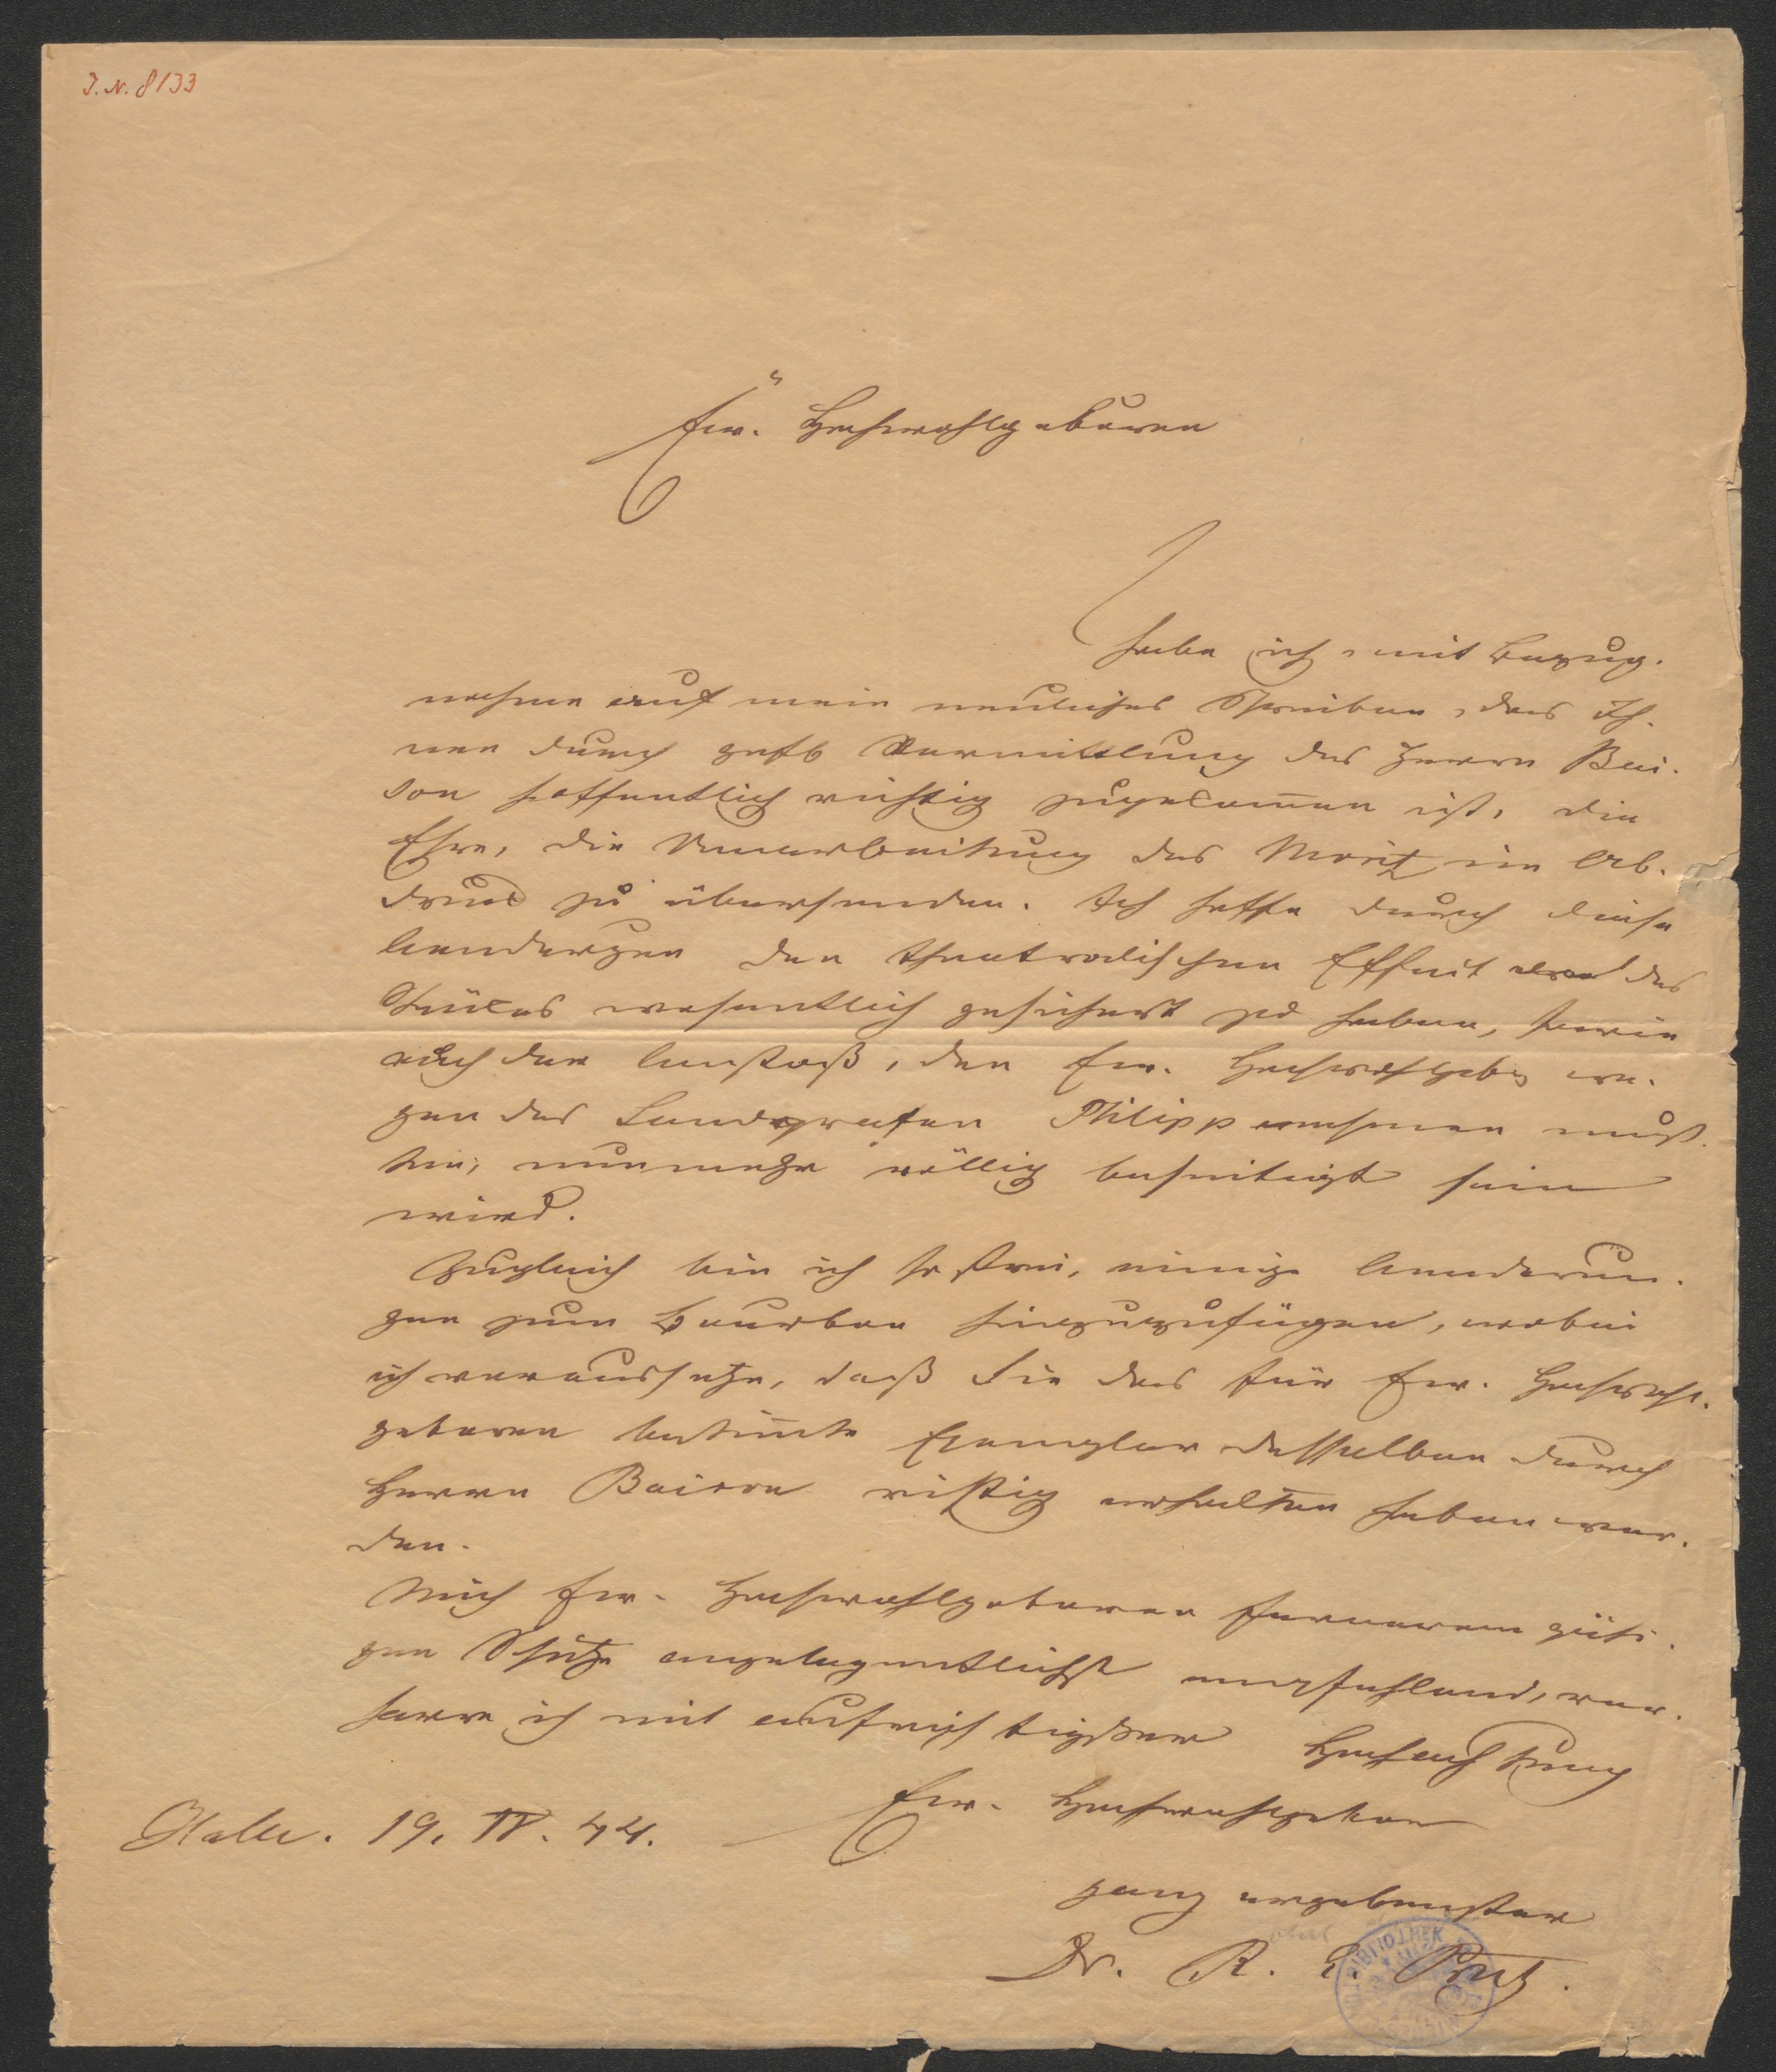 I. N. 8133
Ew. Hochwohlgeboren
habe ich, mit Bezug-
nahme auf mein neuliches Schreiben, das Ih-
nen durch gefl. Vermittlung des Herrn Bai-
son hoffentlich richtig zugekom̄en ist, die
Ehre, die Umarbeitung des Moritz im Ab-
druck zu übersenden. Ich hoffe durch diese
Aenderungen den theatralischen Effect des
Stückes wesentlich gesichert zu haben, sowie
auch der Anstoß, den Ew. Hochwohlgeb. we-
gen des Landgrafen Philipp nehmen muß-
ten, nunmehr völlig beseitigt sein
wird.
Zugleich bin ich so frei, einige Aenderun-
gen zum Bourbon hinzuzufügen, wobei
ich voraussetze, daß Sie das für Ew. Hochwohl-
geboren bestim̄te Exemplar desselben durch
Herrn Baison richtig erhalten haben wer-
den.
Mich Ew. Hochwohlgeboren fernerem güti-
gen Schutze angelegentlichst empfehlend, ver-
harre ich mit aufrichtigster Hochachtung
Ew. Hochwohlgeboren
Halle. 19. IV. 44.
ganz ergebenster
Dr. R. E. Prutz.
BIBLIOTHEK